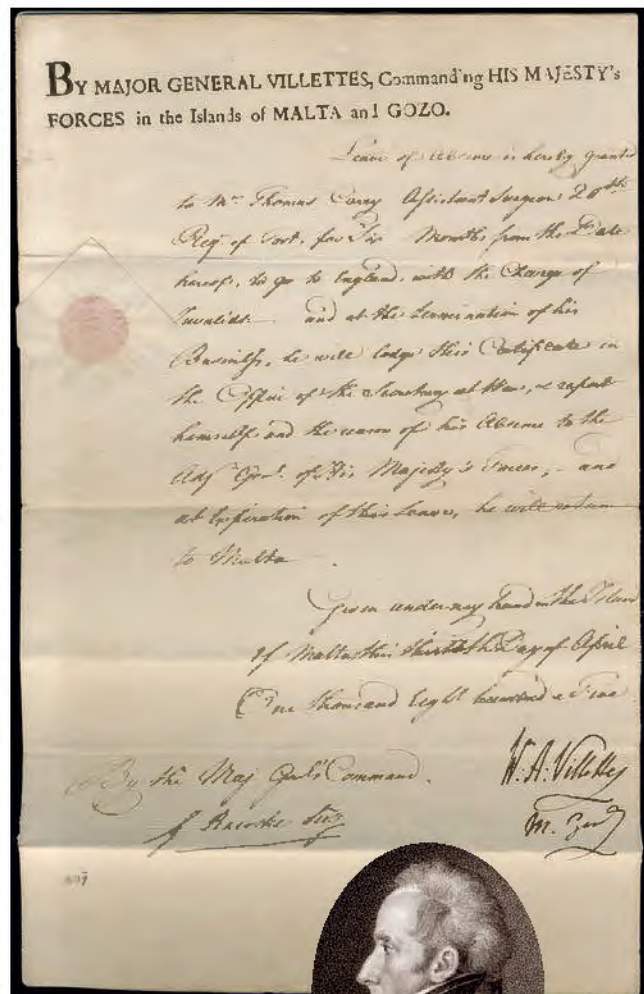 BY MAJOR GENERAL VILLETTES, Commanding HIS MAJESTY's
FORCES in the Islands of MALTA and GOZO.
Leave of Absence is hereby granted
to Mr. Thomas Carey Assistant Surgeon 20th
Reg. of Foot, for Six Months from the Date
hereof, to go to England, with the Charge of
Invalids and at the termination of his
Business, he will lodge this Certificate in
the Office of the Secretary at War, & report
himself and the reason of his Absence to the
Adj Genl. of His Majesty's Forces, and
at Expiration of this Leave, he will return
to Malta
Given under my hand in the Island
of Malta this Day of April
One thousand Eight hundred & Five
By the Maj Genl's Command.
W. A. Villettes
M. Genl